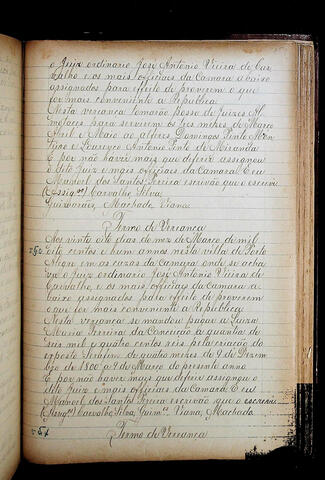 o Juiz ordinario José Antonio Vieira de Car
valho e os mais officiaes da Camara abaixo
assignados para effeito de proverem o que
for mais conveniente a Republica
Nesta vereança tomarão posse de Juizes Al
motaces para servirem os tres mezes de Março
Abril e Maio ao alferes Domingos Pinto Mon
tino e Lourenço Antonio Pinto de Miranda
E por não haver mais que deferir assignou
o dito Juiz e mais officiaes da Camara E eu
Manoel dos Santos Pereira escrivão que o escrevi
Carvalho Silva
Guimarães, Machado, Viana
Termo de Vereança
Aos vinte oito dias do mez de Março de mil
oito centos e hum annos nesta villa de Porto
Alegre em as cazas da Camara onde se acha
va o Juiz ordinario José Antonio Vieira de
Carvalho, e os mais officiaes da Camara a
baixo assignados para effeito de proverem
o que for mais conveniente a Republica
Nesta vereança se mandou pagar a Luiza
Maria Ferreira da Conceição a quantia de
seis mil e quatro centos reis pela criação do
exposto Serafim de quatro mezes de 9 de Dezem
bro de 1800 a 9 de Março do presente anno
E por não haver mais que deferir assignou o
dito Juiz e mais officiaes da Camara E eu
Manoel dos Santos Pereira escrivão que o escrevi
Carvalho Silva, Guim.es Viana, Machado
Termo de Vereança